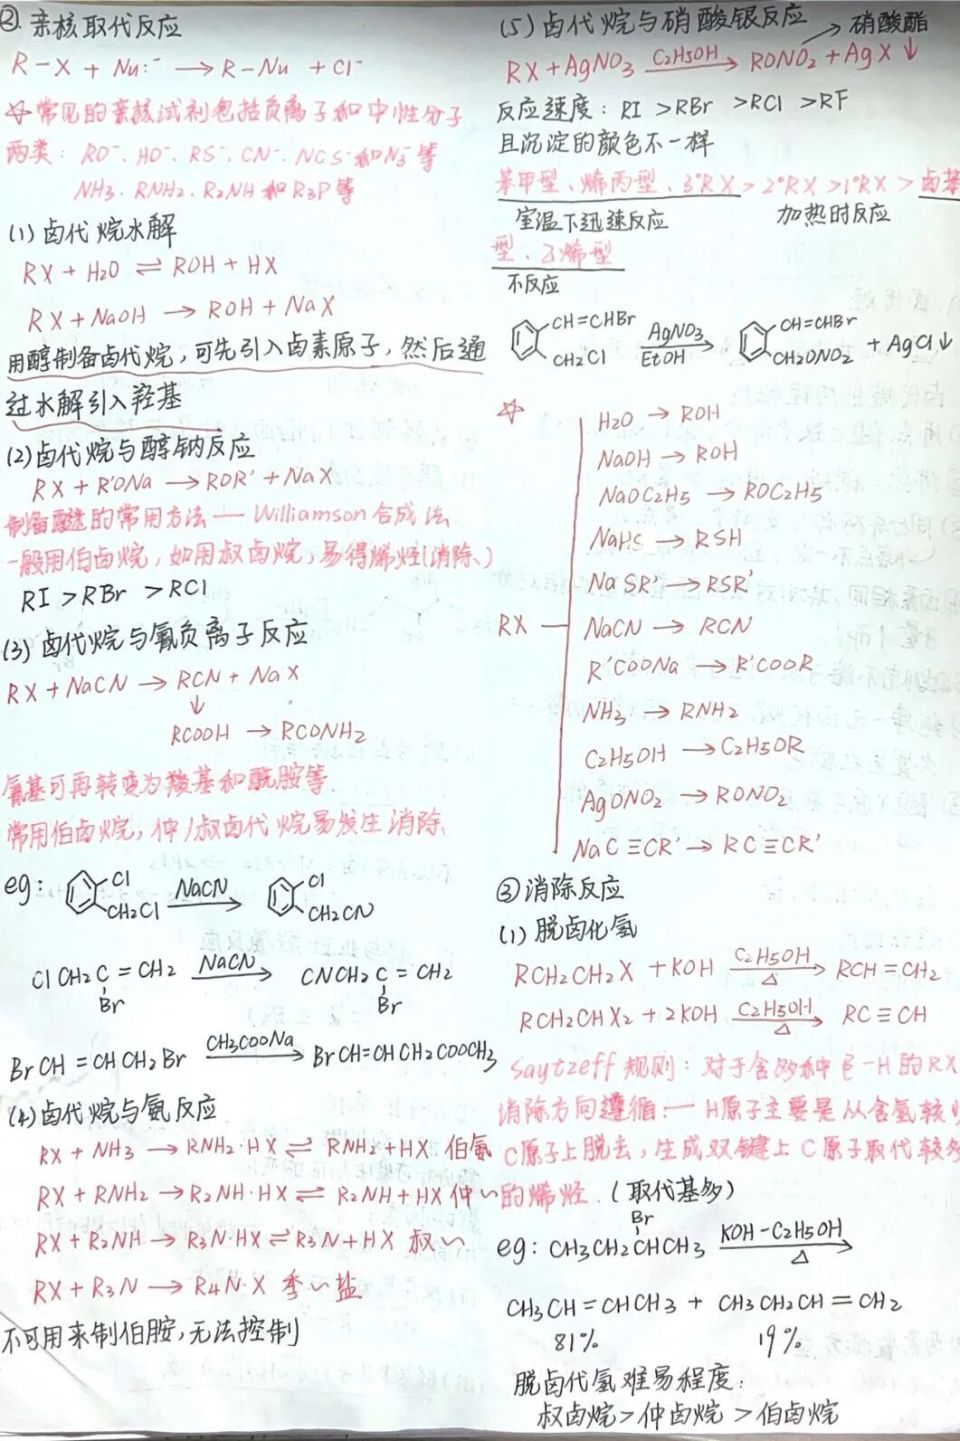 ② 亲核取代反应
R-X + Nu:⁻ → R-Nu + Cl⁻
☆常见的亲核试剂包括负离子和中性分子
两类: RO⁻、HO⁻、RS⁻、CN⁻、NCS⁻和N₃⁻等
NH₃、RNH₂、R₂NH和R₃P等
(1) 卤代烷水解
RX + H₂O ⇌ ROH + HX
RX + NaOH → ROH + NaX
用醇制备卤代烷,可先引入卤素原子,然后通
过水解引入羟基
(2) 卤代烷与醇钠反应
RX + R'ONa → ROR' + NaX
制备醚的常用方法——Williamson合成法
一般用伯卤烷,如用叔卤烷,易得烯烃(消除)
RI > RBr > RCl
(3) 卤代烷与氰负离子反应
RX + NaCN → RCN + NaX
↓
RCOOH → RCONH₂
氰基可再转变为羧基和酰胺等.
常用伯卤烷,仲/叔卤代烷易发生消除.
eg: Cl CH₂Cl NaCN → Cl CH₂CN
ClCH₂C=CH₂ NaCN → CNCH₂C=CH₂
Br Br
BrCH=CHCH₂Br CH₃COONa → BrCH=CHCH₂COOCH₃
(4) 卤代烷与氨反应
RX + NH₃ → RNH₂·HX ⇌ RNH₂+HX 伯氨
RX + RNH₂ → R₂NH·HX ⇌ R₂NH+HX 仲~
RX + R₂NH → R₃N·HX ⇌ R₃N+HX 叔~
RX + R₃N → R₄N·X 季~盐
不可用来制伯胺,无法控制
(5) 卤代烷与硝酸银反应 → 硝酸酯
RX + AgNO₃ C₂H₅OH → RONO₂ + AgX↓
反应速度: RI > RBr > RCl > RF
且沉淀的颜色不一样
苯甲型、烯丙型、3°RX > 2°RX > 1°RX > 卤苯
室温下迅速反应 加热时反应
型、乙烯型
不反应
CH=CHBr CH₂Cl AgNO₃ EtOH → CH=CHBr CH₂ONO₂ + AgCl↓
☆
H₂O → ROH
NaOH → ROH
NaOC₂H₅ → ROC₂H₅
NaHS → RSH
NaSR' → RSR'
RX — NaCN → RCN
R'COONa → R'COOR
NH₃ → RNH₂
C₂H₅OH → C₂H₅OR
AgONO₂ → RONO₂
NaC≡CR' → RC≡CR'
③ 消除反应
(1) 脱卤化氢
RCH₂CH₂X + KOH C₂H₅OH △ → RCH=CH₂
RCH₂CHX₂ + 2KOH C₂H₅OH △ → RC≡CH
Saytzeff规则: 对于含多种β-H的RX
消除方向遵循:— H原子主要是从含氢较少
C原子上脱去,生成双键上C原子取代较多
的烯烃. (取代基多)
Br
eg: CH₃CH₂CHCH₃ KOH-C₂H₅OH △ →
CH₃CH=CHCH₃ + CH₃CH₂CH=CH₂
81% 19%
脱卤代氢难易程度:
叔卤烷 > 仲卤烷 > 伯卤烷